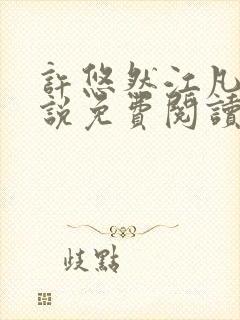 許悠然江凡
說免費閱讀
歧點